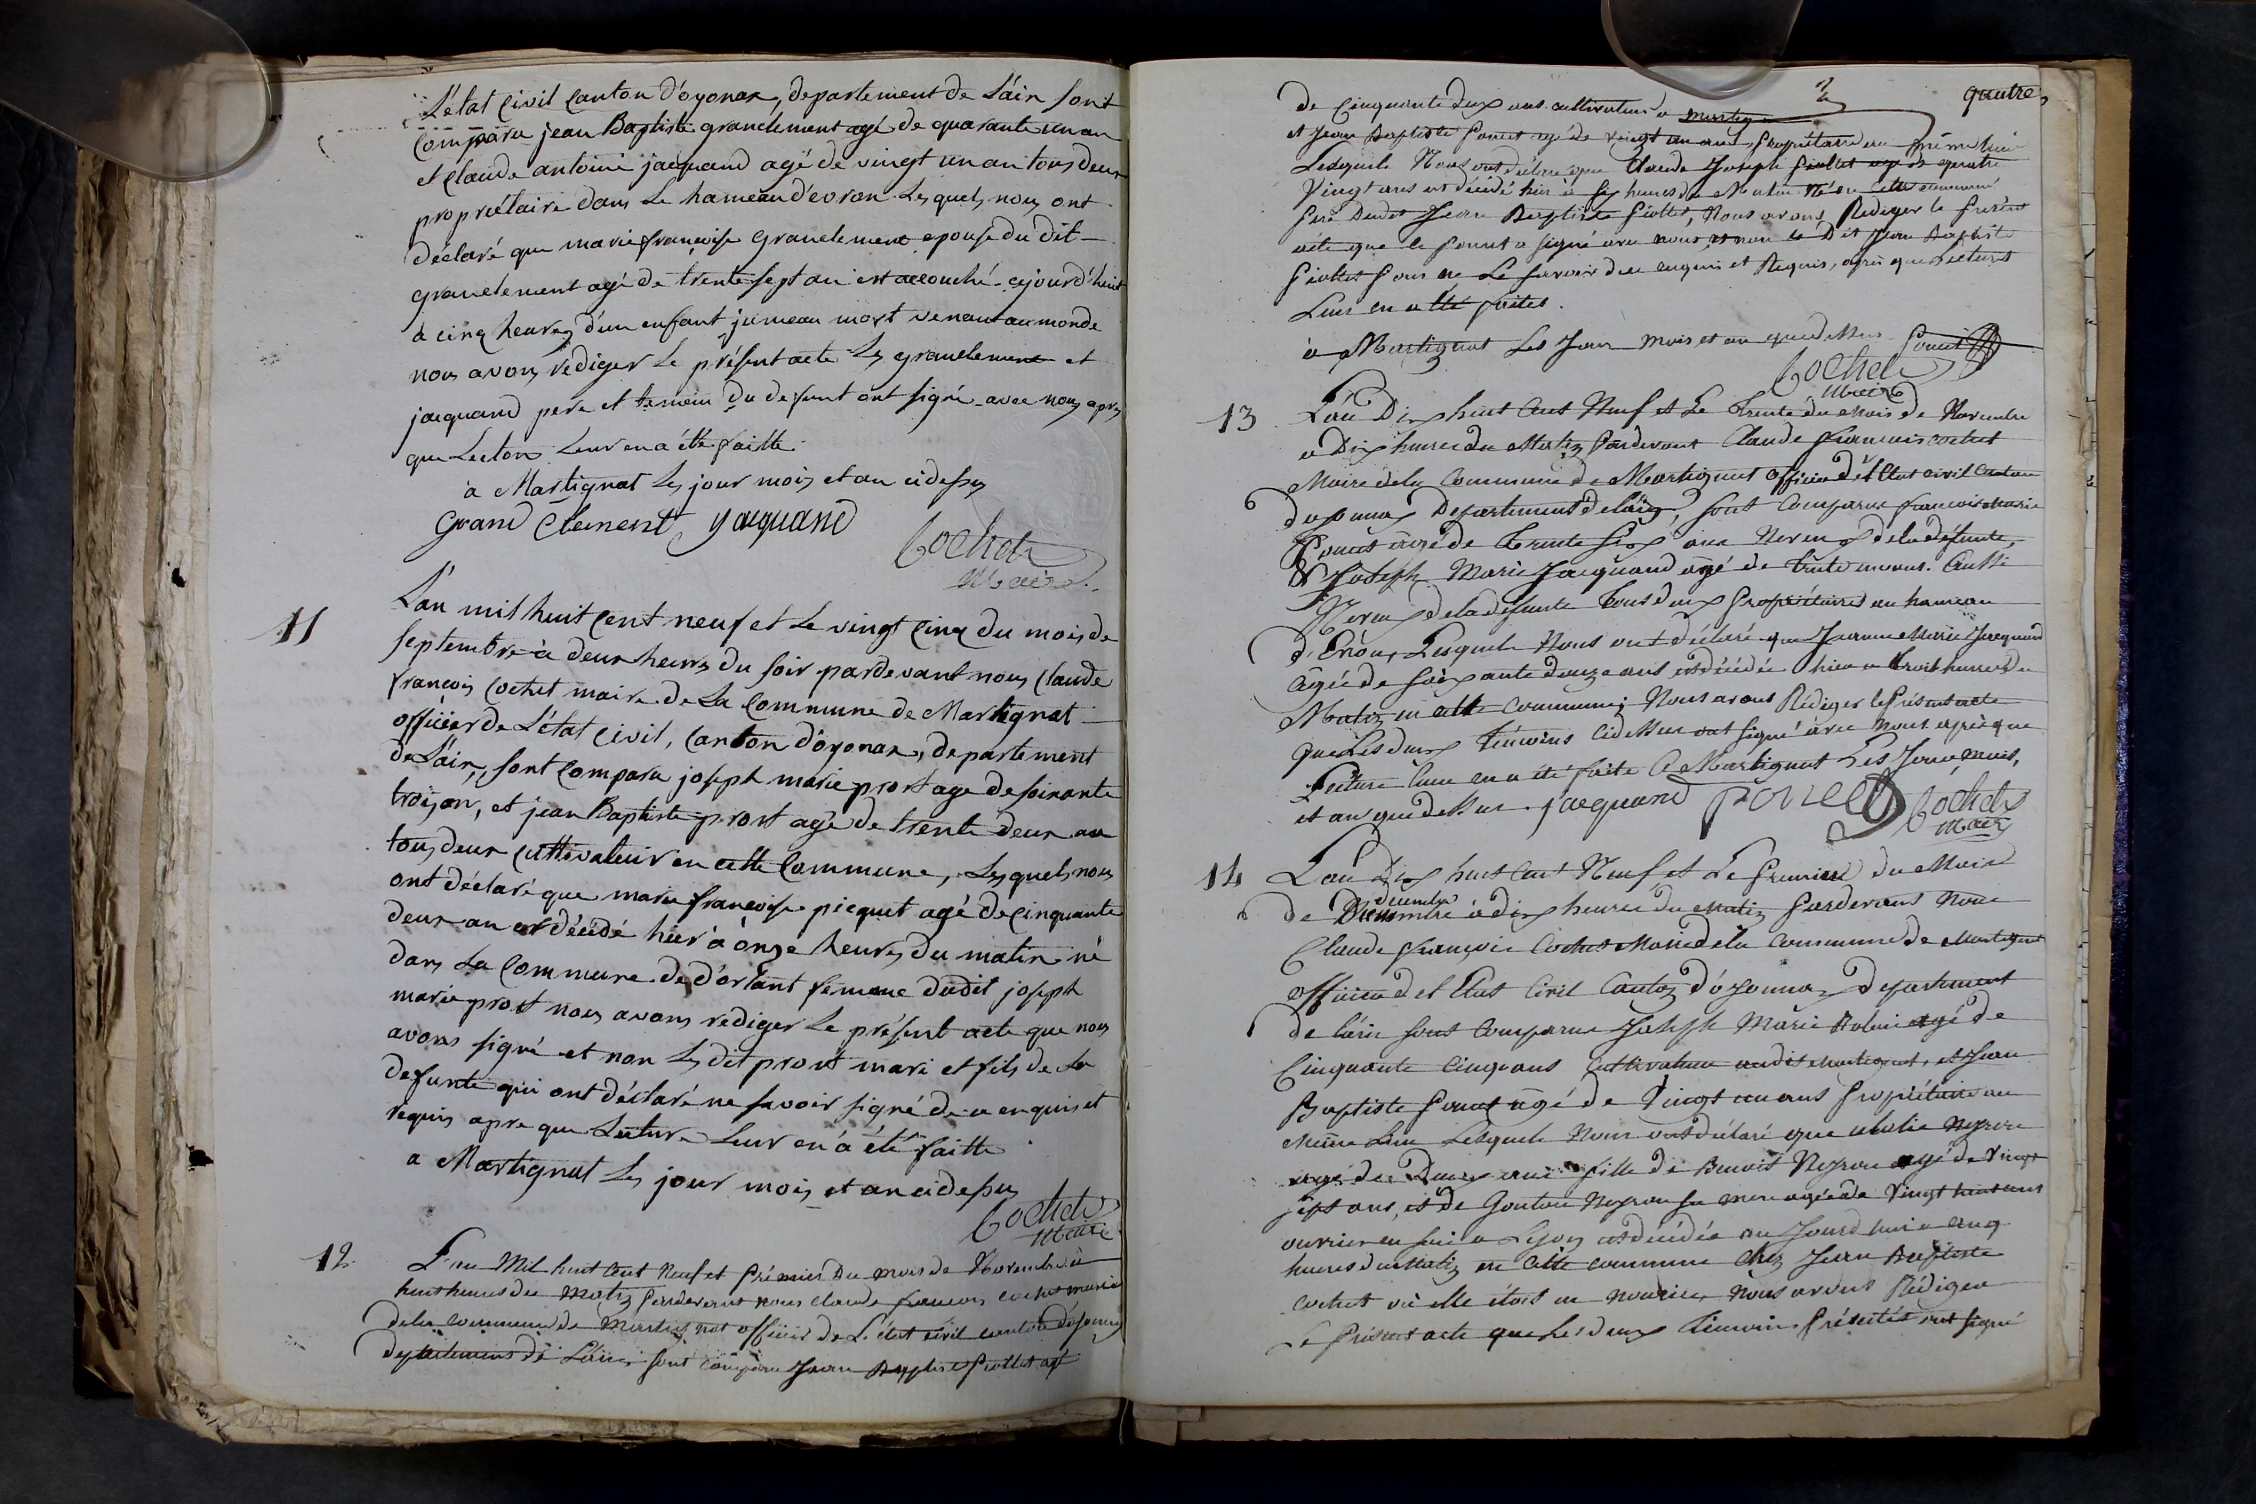 L'état Civil Canton d'oyonax, departement de L'ain sont
Comparu jean Baptiste grandement agé de quarante un an
et Claude antoine jacquand agé de vingt un an tous deux
propriétaire dans Le hameau d'evron Lesquels nous ont
déclaré que marie françoise Grandement epouse du dit
grandement agé de trente sept an est accouché cejourd'huit
à cinq heures d'un enfant jumeau mort venant au monde
nous avons rediger Le présent acte Les grandement et
jacquand pere et temoin du defunt ont signé avec nous apres
que Lecton Leur en a été faitte
à Martignat Les jour mois et an cidessus
Grand Clement yacquand
Cochet
Maire
11
L'an mil huit Cent neuf et Le vingt Cinq du mois de
septembre à deux heures du soir pardevant nous Claude
françois Cochet maire de La Commune de Martignat
officier de L'état Civil, Canton d'oyonax, departement
de L'ain, sont Comparu joseph marie prost agé de soixante
trois an, et jean Baptiste prost agé de trente deux an
tous deux Cultivateur en cette Commune, Lesquels nous
ont déclaré que marie françoise picquet agé de Cinquante
deux an est décédé hier à onze heures du matin né
dans La Commune de d'ortant femme dudit joseph
marie prost nous avons rediger Le présent acte que nous
avons signé et non Les dit prost mari et fils de La
defunte qui ont déclaré ne savoir signé de ce enquis et
requis apre que Lecture Leur en a été faitte
a Martignat Les jour mois et an cidessus
Cochet
Maire
12
L'an Mil huit Cent Neuf et Prémier Du mois de Novembre à
huit heures du Matin Pardevant nous Claude francois Cochet maire
de la Commune de Martignat officier de L'état civil canton d'oyonna
departement de L'ain, sont comparu Jean Baptiste Piollet agé
quatre
de Cinquante deux ans cultivateur a Martigna
et Jean Baptiste Poncet agé de vingt un ans Propriétaire au même lieu
Lesquels Nous ont déclaré que Claude Joseph Piollet agé de quatre
Vingt ans est décédé hier à six heures du Matin Né en cette commune
Pere Dudit Jean Baptiste Piollet, Nous avons Rediger le Présent
acte que le Poncet a signé avec nous et non le Dit Jean Baptiste
Piollet Pour ne Le savoir de ce enquis et Requis, après que Lecture
Leur en a été faites.
à Martignat Les Jour Mois et an que dessus Poncet
Cochet
Maire
13
L'an Dix huit Cent Neuf et Le Trente du Mois de Novembre
a Dix heures du Matin Pardevant Claude François Cochet
Maire de la Commune de Martignat Officier de l'Etat civil Canton
d'oyonnax Departement de l'ain, sont Comparus françois Marie
Poncet âgé de Trente Six ans Neveux de la défunte,
& Joseph Marie Jacquand agé de trente un ans. Aussi
Neveux de la défunte Tous deux Propriétaires au hameau
d'Evron, Lesquels Nous ont déclaré que Jeanne Marie Jacquand
Agée de soixante douze ans est décédée hier a trois heures du
Matin en cette Commune; Nous avons Rédiger le Présent acte
que Les deux Témoins Cidessus ont signé avec Nous après que
Lecture Leur en a été faite A Martignat Les Jour, mois,
et an que dessus. jacquand Poncet Cochet
Maire
14
L'an Dix huit Cent Neuf et Le Premier du Mois
decembre
de à dix heures du Matin Pardevant Nous
Claude François Cochet Maire de la Commune de Martignat
officier de l'Etat Civil Canton d'oyonnax Departement
de l'ain sont Comparus Joseph Marie agé de
Cinquante Cinq ans Cultivateur audit Martignat, et Jean
Baptiste Poncet agé de Vingt un ans Propriétaire au
Même Lieu Lesquels Nous ont déclaré que Neyron
agé de Deux ans fille de Benoit Neyron agé de Vingt
sept ans, et de Neyron sa mere agée de Vingt huit ans
ouvriers en soie a Lyon est décédée au Jourd'hui a cinq
heures du Matin en Cette commune Chez Jean Baptiste
Cochet où elle étoit en Nourice, Nous avons Rédiger
Le Présent acte que Les deux Témoins Précités ont signé